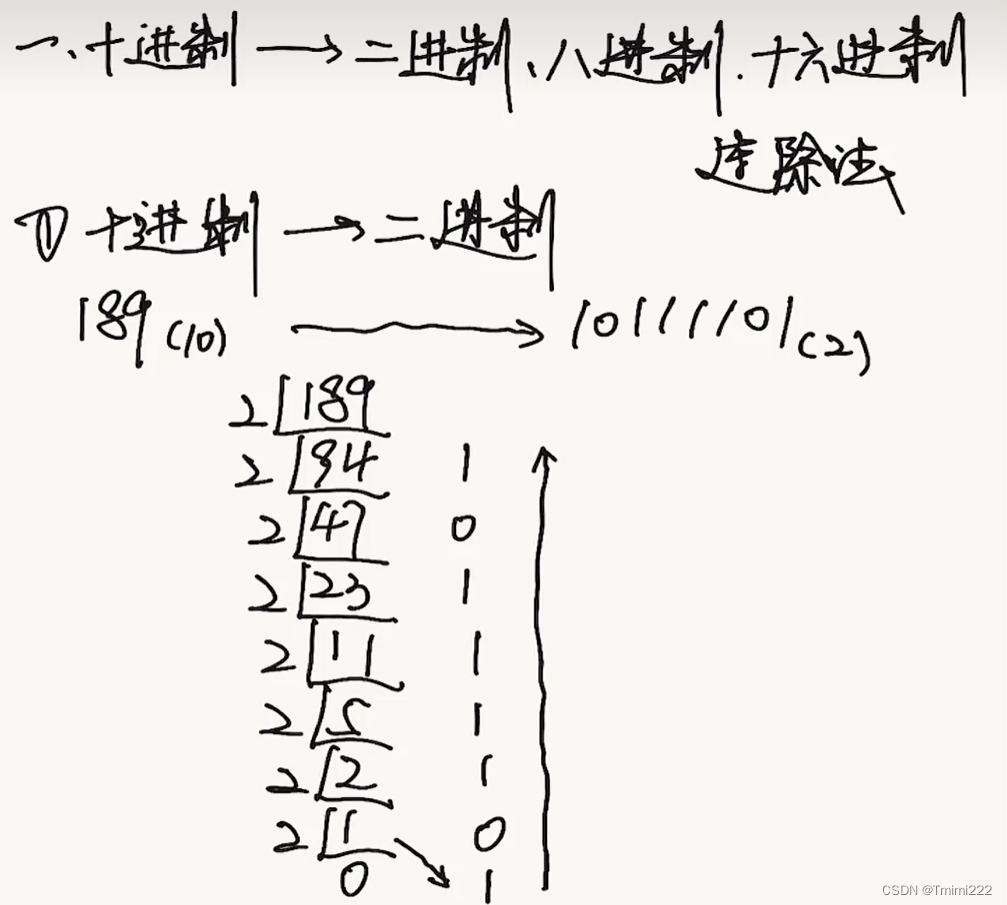 一、十进制 → 二进制、八进制、十六进制
连除法
① 十进制 → 二进制
189(10) → 10111101(2)
2 189
2 94 1
2 47 0
2 23 1
2 11 1
2 5 1
2 2 1
2 1 0
0 1
CSDN @Tmimi222